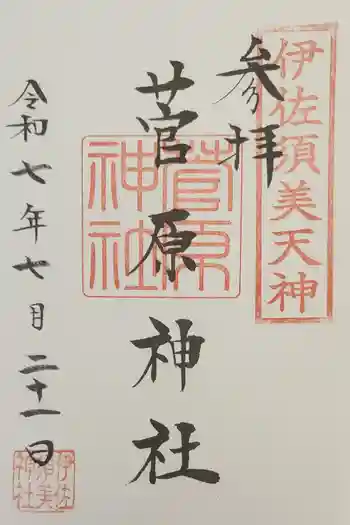 伊佐須美天神
参拝
菅原神社
菅原神社
令和七年七月二十一日
伊佐須美神社